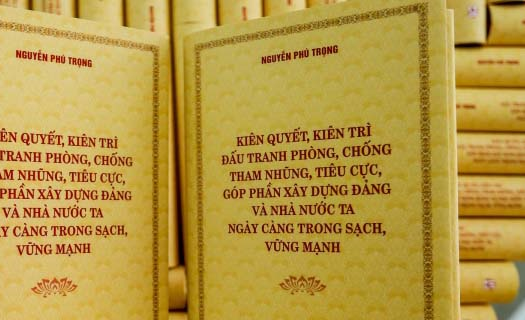 NGUYỄN PHÚ TRỌNG
KIÊN QUYẾT, KIÊN TRÌ
TRANH PHÒNG, CHỐNG
THAM NHŨNG, TIÊU CỰC,
PHẦN XÂY DỰNG ĐẢNG
VÀ NHÀ NƯỚC TA
CÀNG TRONG SẠCH,
VỮNG MẠNH
NGUYỄN PHÚ TRỌNG
KIÊN QUYẾT, KIÊN TRÌ
ĐẤU TRANH PHÒNG, CHỐNG
THAM NHŨNG, TIÊU CỰC,
GÓP PHẦN XÂY DỰNG ĐẢNG
VÀ NHÀ NƯỚC TA
NGÀY CÀNG TRONG SẠCH,
VỮNG MẠNH